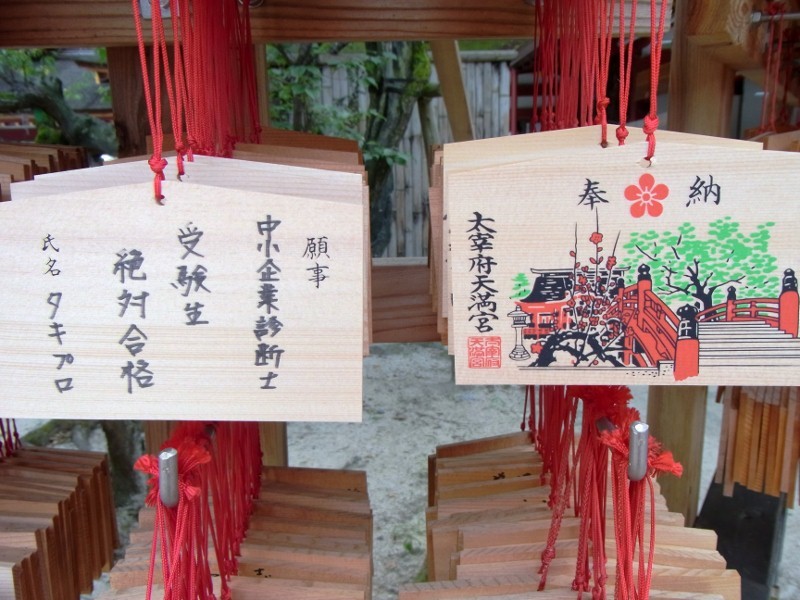 願事
中小企業診断士
受験生
絶対合格
氏名 タキプロ
奉納
太宰府天満宮